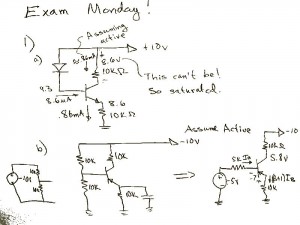 Exam Monday!
1)
a)
Assuming
active
+10v
.86mA
8.6v
10KΩ
This can't be!
So saturated.
9.3
8.6μA
8.6
10KΩ
.86mA
b)
Assume Active
-10v
-10
10K
10K
10K
10K
⇒
5K IB
5.8v
-5v
10K